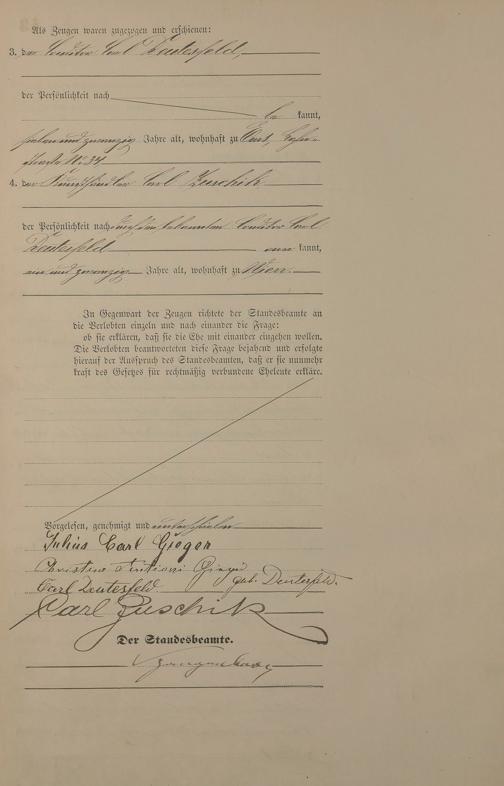 Als Zeugen waren zugezogen und erschienen:
3. der Konditor Carl Deutesfeld,
der Persönlichkeit nach
be kannt,
sieben und zwanzig Jahre alt, wohnhaft zu
straße No. 34
4. der Kunsthändler Carl Zuschik
der Persönlichkeit nach durch den bekannten Konditor Carl
Deutesfeld aner kannt,
ein und zwanzig Jahre alt, wohnhaft zu Wien.
In Gegenwart der Zeugen richtete der Standesbeamte an
die Verlobten einzeln und nach einander die Frage:
ob sie erklären, daß sie die Ehe mit einander eingehen wollen.
Die Verlobten beantworteten diese Frage bejahend und erfolgte
hierauf der Ausspruch des Standesbeamten, daß er sie nunmehr
kraft des Gesetzes für rechtmäßig verbundene Eheleute erkläre.
Vorgelesen, genehmigt und unterschrieben
Julius Carl Gieger
Christine Gieger
geb. Deutesfeld.
Carl Deutesfeld.
Carl Zuschik
Der Standesbeamte.